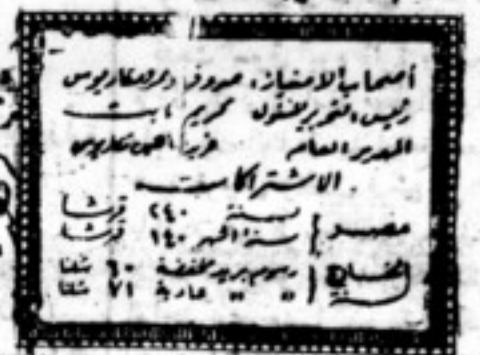 أصحاب الامتياز: صروف ونمر ومكاريوس
رئيس التحرير المسئول كريم ثابت
المدير العام فريد أمين مكاريوس
الاشتراكات
مصر { سنة ٢٤٠ قرشا
ستة اشهر ١٤٠ قرشا
الخارج { رسوم بريد مخفضة ٦٠ شلنا
سنة { » » عادية ٧١ شلنا